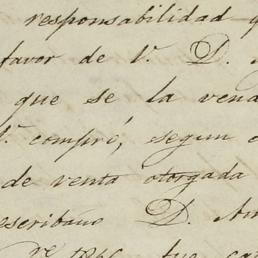 responsabilidad q
favor de V. D.
que se la vend
compré, segun
de venta otorgada
escribano D. An